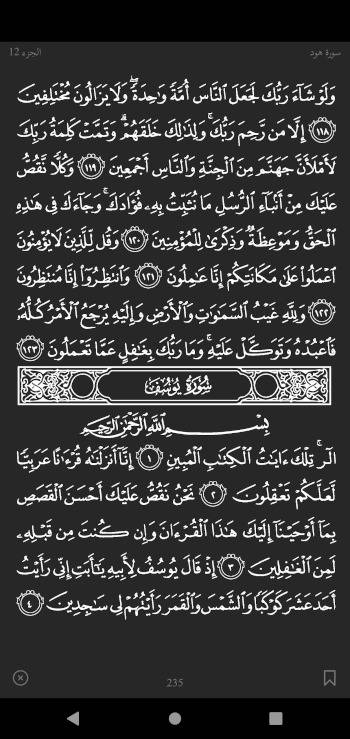 الجزء 12 سورة هود
وَلَوْ شَآءَ رَبُّكَ لَجَعَلَ ٱلنَّاسَ أُمَّةً وَٰحِدَةً ۖ وَلَا يَزَالُونَ مُخْتَلِفِينَ
﴿١١٨﴾ إِلَّا مَن رَّحِمَ رَبُّكَ ۚ وَلِذَٰلِكَ خَلَقَهُمْ ۗ وَتَمَّتْ كَلِمَةُ رَبِّكَ
لَأَمْلَأَنَّ جَهَنَّمَ مِنَ ٱلْجِنَّةِ وَٱلنَّاسِ أَجْمَعِينَ ﴿١١٩﴾ وَكُلًّا نَّقُصُّ
عَلَيْكَ مِنْ أَنۢبَآءِ ٱلرُّسُلِ مَا نُثَبِّتُ بِهِۦ فُؤَادَكَ ۚ وَجَآءَكَ فِى هَٰذِهِ
ٱلْحَقُّ وَمَوْعِظَةٌ وَذِكْرَىٰ لِلْمُؤْمِنِينَ ﴿١٢٠﴾ وَقُل لِّلَّذِينَ لَا يُؤْمِنُونَ
ٱعْمَلُوا۟ عَلَىٰ مَكَانَتِكُمْ إِنَّا عَٰمِلُونَ ﴿١٢١﴾ وَٱنتَظِرُوٓا۟ إِنَّا مُنتَظِرُونَ
﴿١٢٢﴾ وَلِلَّهِ غَيْبُ ٱلسَّمَٰوَٰتِ وَٱلْأَرْضِ وَإِلَيْهِ يُرْجَعُ ٱلْأَمْرُ كُلُّهُۥ
فَٱعْبُدْهُ وَتَوَكَّلْ عَلَيْهِ ۚ وَمَا رَبُّكَ بِغَٰفِلٍ عَمَّا تَعْمَلُونَ ﴿١٢٣﴾
سُورَةُ يُوسُفَ
بِسْمِ ٱللَّهِ ٱلرَّحْمَٰنِ ٱلرَّحِيمِ
الٓر ۚ تِلْكَ ءَايَٰتُ ٱلْكِتَٰبِ ٱلْمُبِينِ ﴿١﴾ إِنَّآ أَنزَلْنَٰهُ قُرْءَٰنًا عَرَبِيًّا
لَّعَلَّكُمْ تَعْقِلُونَ ﴿٢﴾ نَحْنُ نَقُصُّ عَلَيْكَ أَحْسَنَ ٱلْقَصَصِ
بِمَآ أَوْحَيْنَآ إِلَيْكَ هَٰذَا ٱلْقُرْءَانَ وَإِن كُنتَ مِن قَبْلِهِۦ
لَمِنَ ٱلْغَٰفِلِينَ ﴿٣﴾ إِذْ قَالَ يُوسُفُ لِأَبِيهِ يَٰٓأَبَتِ إِنِّى رَأَيْتُ
أَحَدَ عَشَرَ كَوْكَبًا وَٱلشَّمْسَ وَٱلْقَمَرَ رَأَيْتُهُمْ لِى سَٰجِدِينَ ﴿٤﴾
235